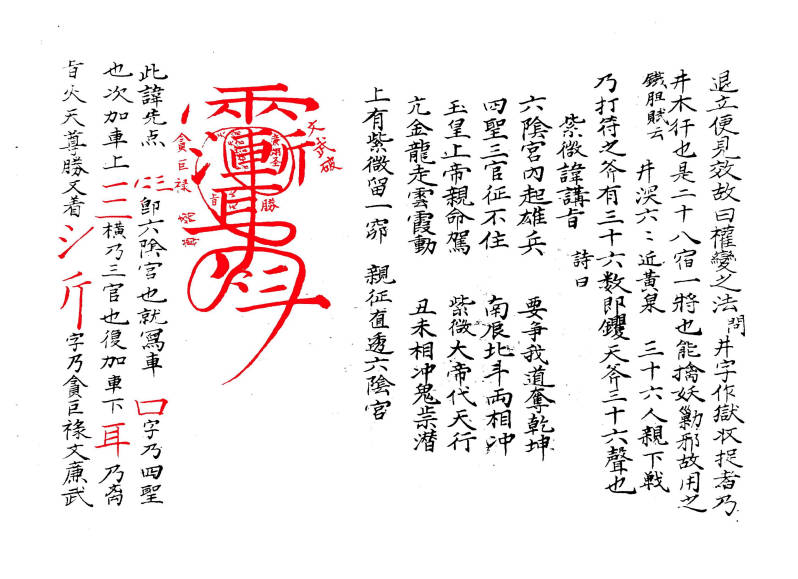 退立便見效故曰權變之法問井字作獄收捉者乃
井木犴也是二十八宿一將也能擒妖勦邪故用之
鐵胆賦云 井深六六近黃泉 三十六人親下戰
乃打符之斧有三十六数即鑼天斧三十六聲也
紫微諱講旨 詩曰
六陰宮内起雄兵 要爭我道奪乾坤
四聖三官征不住 南辰北斗両相冲
玉皇上帝親命駕 紫微大帝代天行
亢金龍走雲霞動 丑未相冲鬼祟潜
上有紫微留一窍 親征直透六陰宮
文武破
勝
旨
貪巨禄
此諱先点 二三 即六陰宮也就寫車 口 字乃四聖
也次加車上 一二 橫乃三官也復加車下 耳 乃
旨火天尊勝又着 氵斤 字乃貪巨禄文廉武